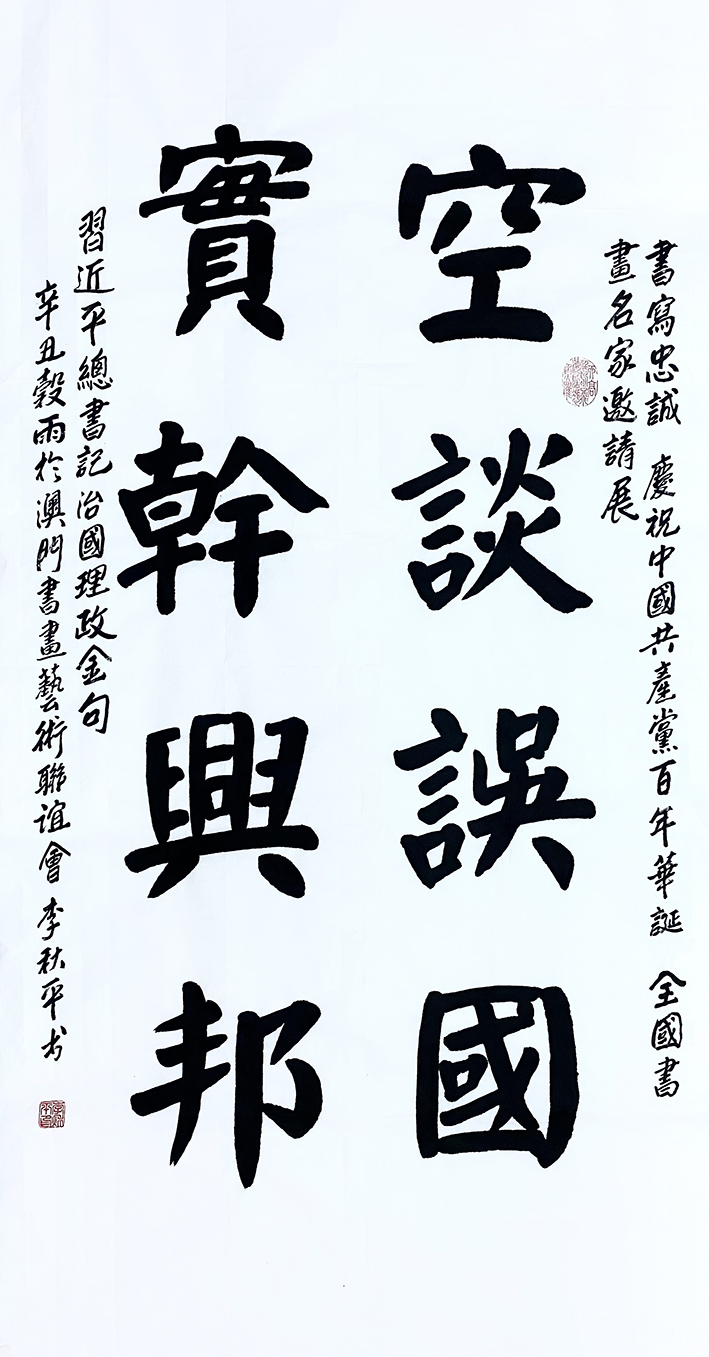 書寫忠誠 慶祝中國共產黨百年華誕 全國書
畫名家邀請展
空談誤國
實幹興邦
習近平總書記治國理政金句
辛丑穀雨於澳門書畫藝術聯誼會 李秋平书